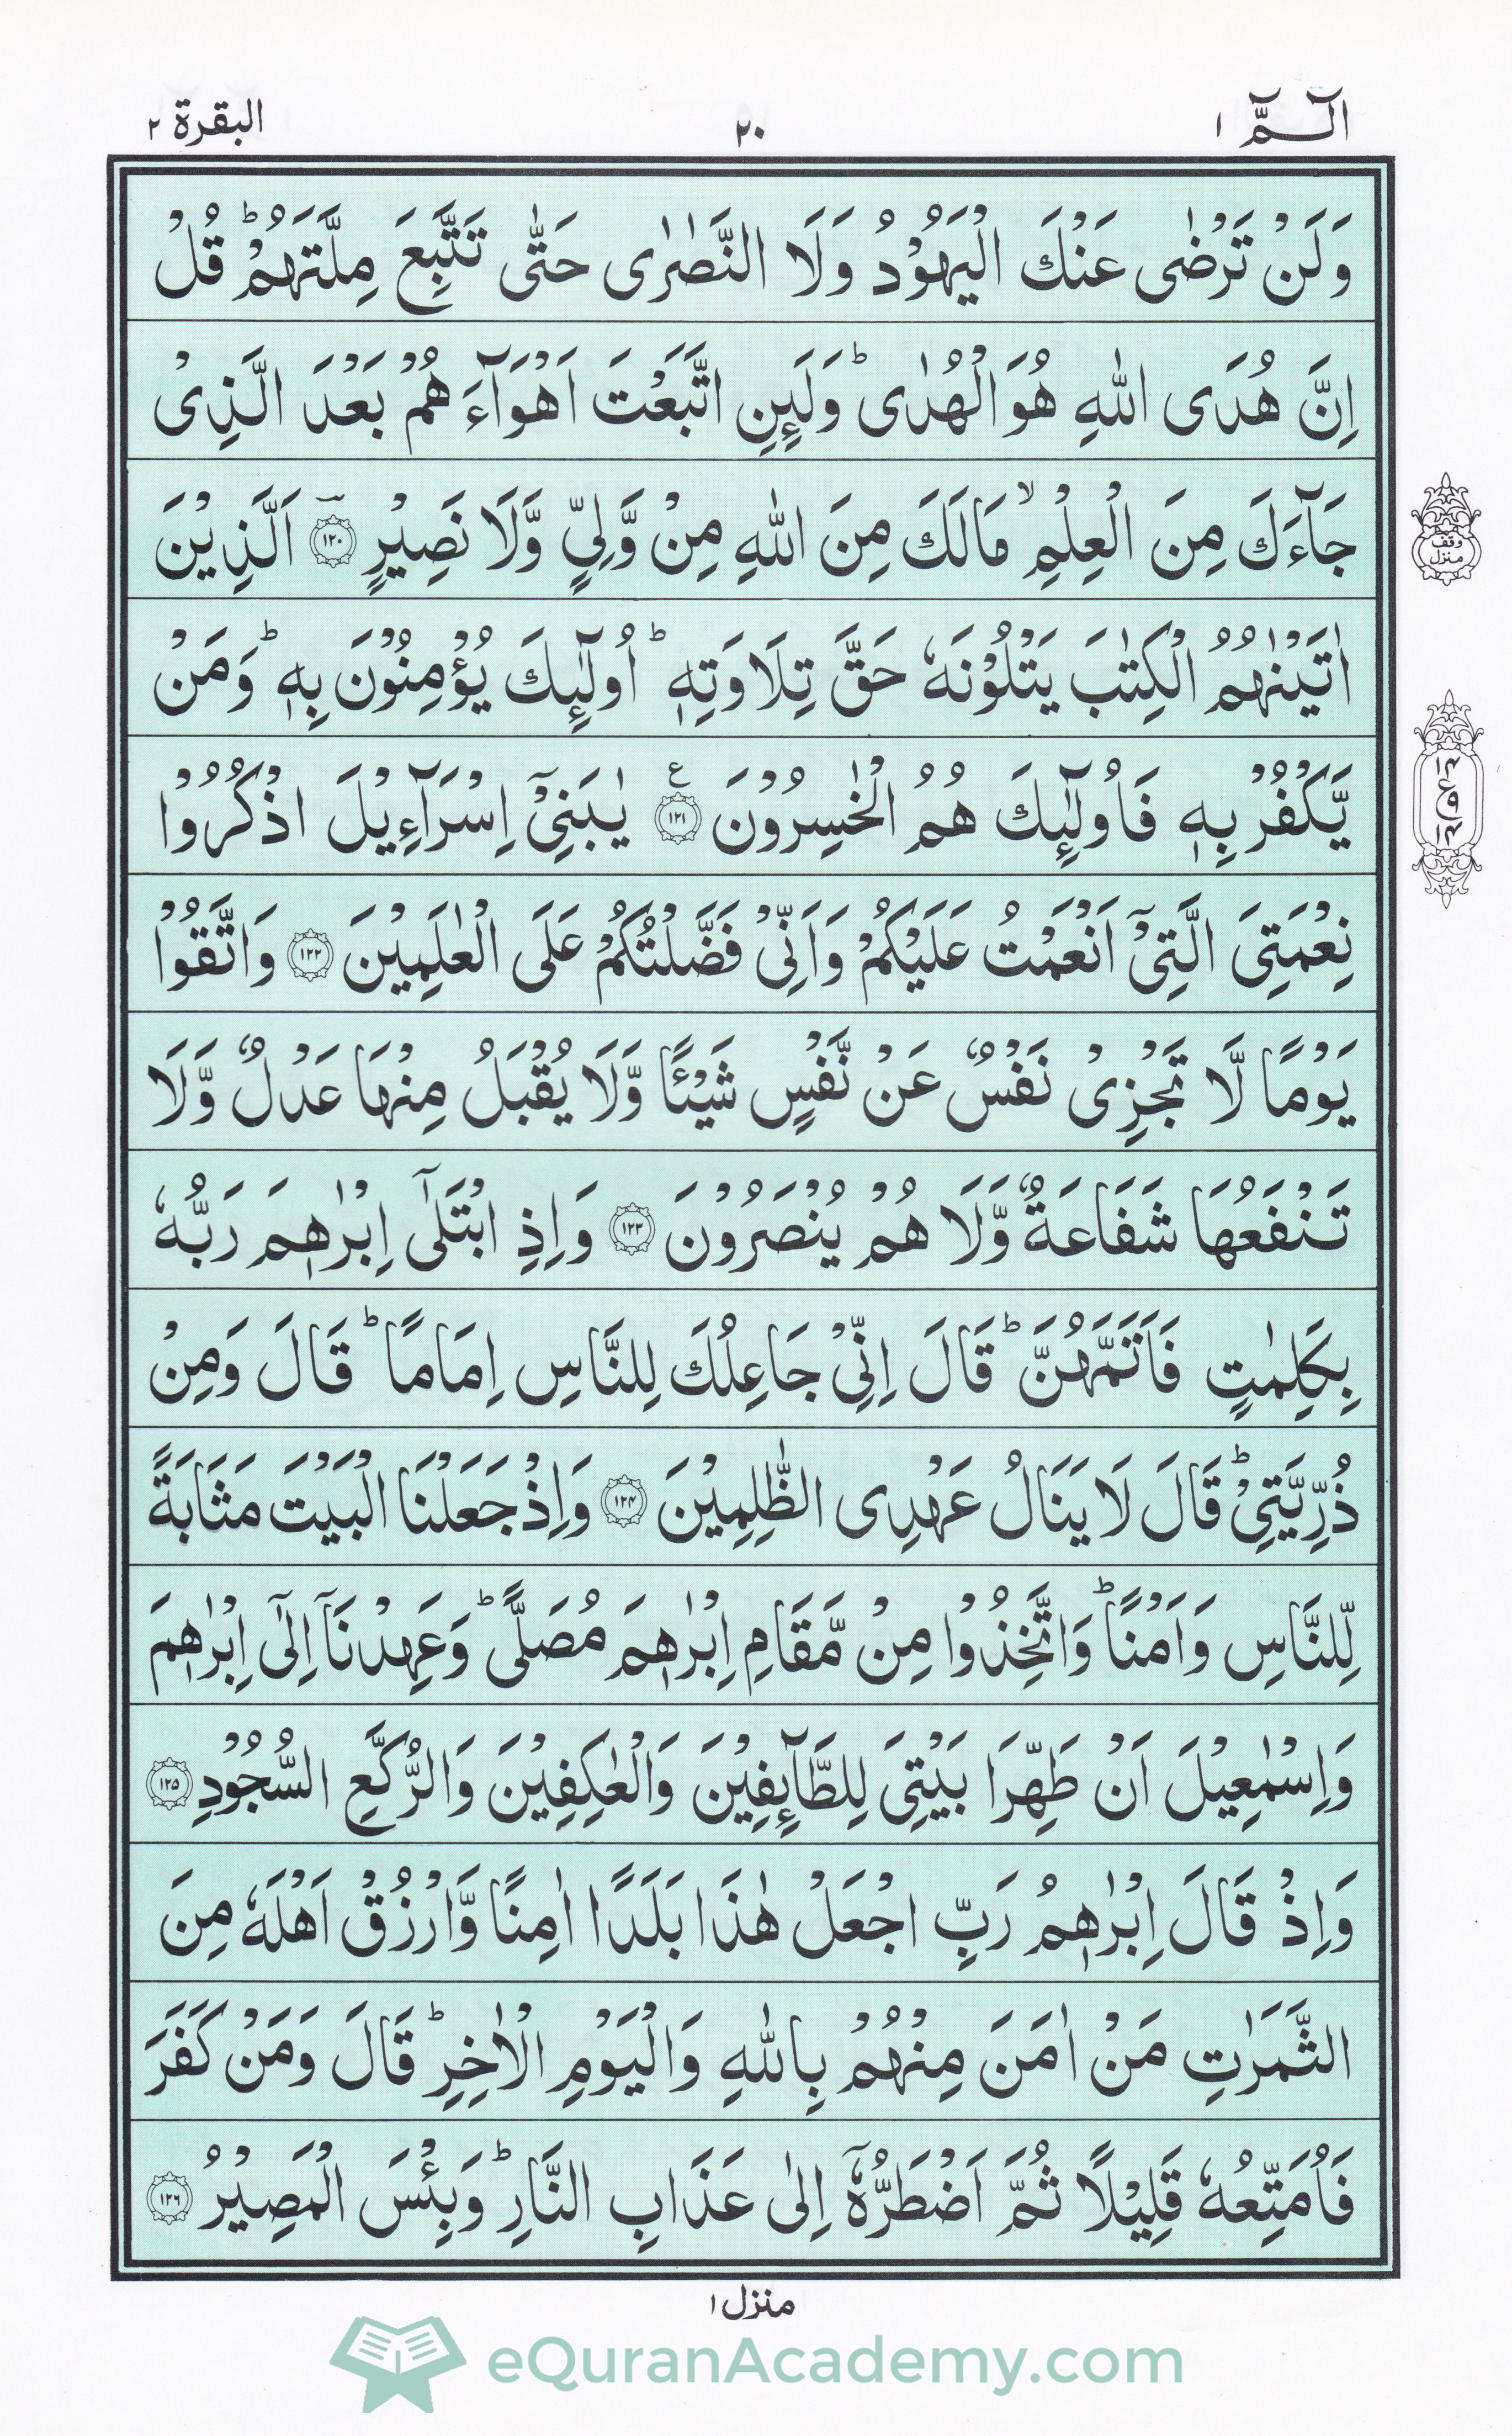 الٓـمّٓ ۱
۲۰
البقرة ۲
وَلَنْ تَرْضٰى عَنْكَ الْيَهُوْدُ وَلَا النَّصٰرٰى حَتّٰى تَتَّبِعَ مِلَّتَهُمْ ؕ قُلْ
اِنَّ هُدَى اللّٰهِ هُوَ الْهُدٰى ؕ وَلَىِٕنِ اتَّبَعْتَ اَهْوَآءَهُمْ بَعْدَ الَّذِىْ
جَآءَكَ مِنَ الْعِلْمِ ۙ مَا لَكَ مِنَ اللّٰهِ مِنْ وَّلِىٍّ وَّلَا نَصِيْرٍ ؔ ۱۲۰ اَلَّذِيْنَ
وقف منزل
اٰتَيْنٰهُمُ الْكِتٰبَ يَتْلُوْنَهٗ حَقَّ تِلَاوَتِهٖ ؕ اُولٰٓىِٕكَ يُؤْمِنُوْنَ بِهٖ ؕ وَمَنْ
يَّكْفُرْ بِهٖ فَاُولٰٓىِٕكَ هُمُ الْخٰسِرُوْنَ ۱۲۱ ع يٰبَنِىْۤ اِسْرَآءِيْلَ اذْكُرُوْا
نِعْمَتِىَ الَّتِىْۤ اَنْعَمْتُ عَلَيْكُمْ وَاَنِّىْ فَضَّلْتُكُمْ عَلَى الْعٰلَمِيْنَ ۱۲۲ وَاتَّقُوْا
يَوْمًا لَّا تَجْزِىْ نَفْسٌ عَنْ نَّفْسٍ شَيْـًٔا وَّلَا يُقْبَلُ مِنْهَا عَدْلٌ وَّلَا
تَنْفَعُهَا شَفَاعَةٌ وَّلَا هُمْ يُنْصَرُوْنَ ۱۲۳ وَاِذِ ابْتَلٰٓى اِبْرٰهٖمَ رَبُّهٗ
بِكَلِمٰتٍ فَاَتَمَّهُنَّ ؕ قَالَ اِنِّىْ جَاعِلُكَ لِلنَّاسِ اِمَامًا ؕ قَالَ وَمِنْ
ذُرِّيَّتِىْ ؕ قَالَ لَا يَنَالُ عَهْدِى الظّٰلِمِيْنَ ۱۲۴ وَاِذْ جَعَلْنَا الْبَيْتَ مَثَابَةً
لِّلنَّاسِ وَاَمْنًا ؕ وَاتَّخِذُوْا مِنْ مَّقَامِ اِبْرٰهٖمَ مُصَلًّى ؕ وَعَهِدْنَاۤ اِلٰٓى اِبْرٰهٖمَ
وَاِسْمٰعِيْلَ اَنْ طَهِّرَا بَيْتِىَ لِلطَّآىِٕفِيْنَ وَالْعٰكِفِيْنَ وَالرُّكَّعِ السُّجُوْدِ ۱۲۵
وَاِذْ قَالَ اِبْرٰهٖمُ رَبِّ اجْعَلْ هٰذَا بَلَدًا اٰمِنًا وَّارْزُقْ اَهْلَهٗ مِنَ
الثَّمَرٰتِ مَنْ اٰمَنَ مِنْهُمْ بِاللّٰهِ وَالْيَوْمِ الْاٰخِرِ ؕ قَالَ وَمَنْ كَفَرَ
فَاُمَتِّعُهٗ قَلِيْلًا ثُمَّ اَضْطَرُّهٗۤ اِلٰى عَذَابِ النَّارِ ؕ وَبِئْسَ الْمَصِيْرُ ۱۲۶
منزل ۱
eQuranAcademy.com